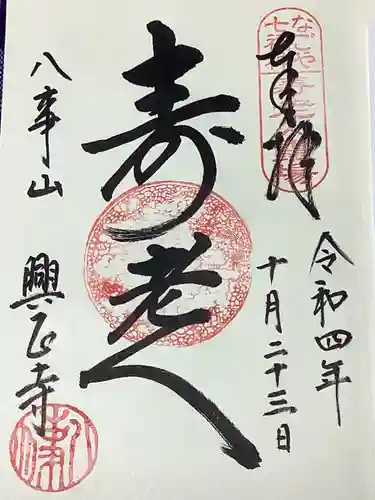 奉拝
なごや
七福
令和四年
十月二十三日
寿老人
八事山
興正寺